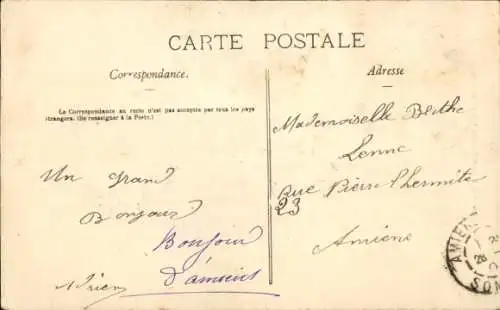 CARTE POSTALE
Correspondance.
La Correspondance au recto n'est pas acceptée par tous les pays
étrangers. (Se renseigner à la Poste.)
Un grand
Bonjour
Bonjour
d'amiens
Adrien
Adresse
Mademoiselle Berthe
Lenne
Rue Pierre l'hermite
23
Amiens
AMIENS
SOM